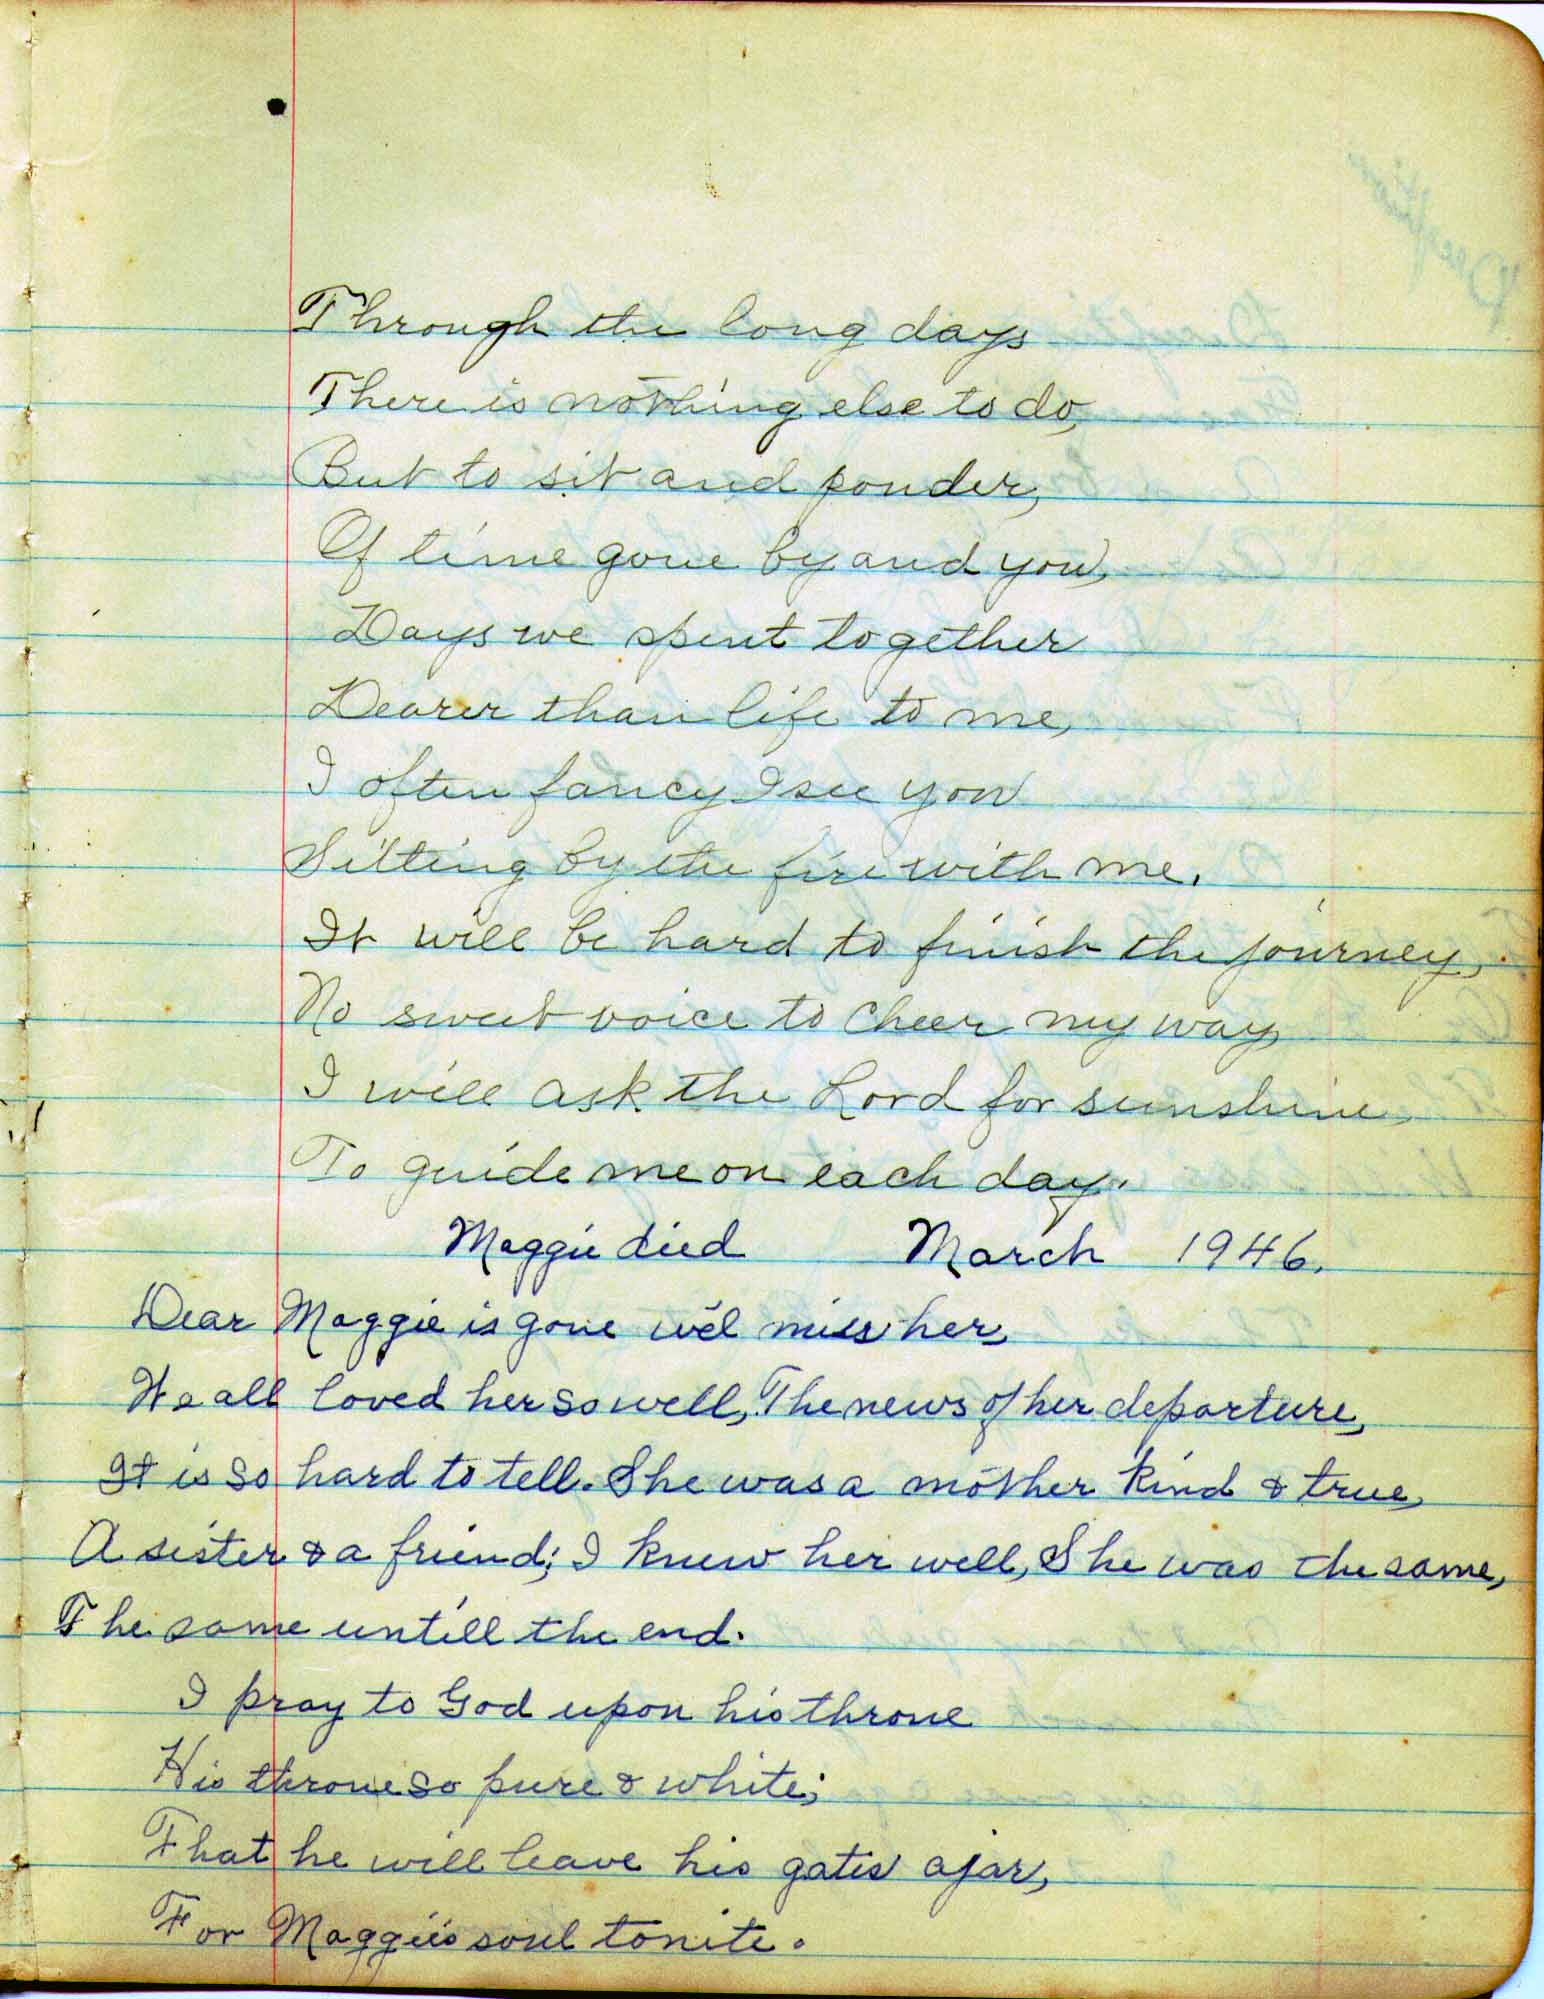 Through the long days
There is nothing else to do,
But to sit and ponder,
Of time gone by and you,
Days we spent together
Dearer than life to me,
I often fancy I see you
Sitting by the fire with me.
It will be hard to finish the journey,
No sweet voice to cheer my way,
I will ask the Lord for sunshine,
To guide me on each day.
Maggie died March 1946.
Dear Maggie is gone we'l miss her,
We all loved her so well, The news of her departure,
It is so hard to tell. She was a mother kind & true,
A sister & a friend; I knew her well, She was the same,
The same untill the end.
I pray to God upon his throne
His throne so pure & white;
That he will leave his gates ajar,
For Maggie's soul tonite.
Deception